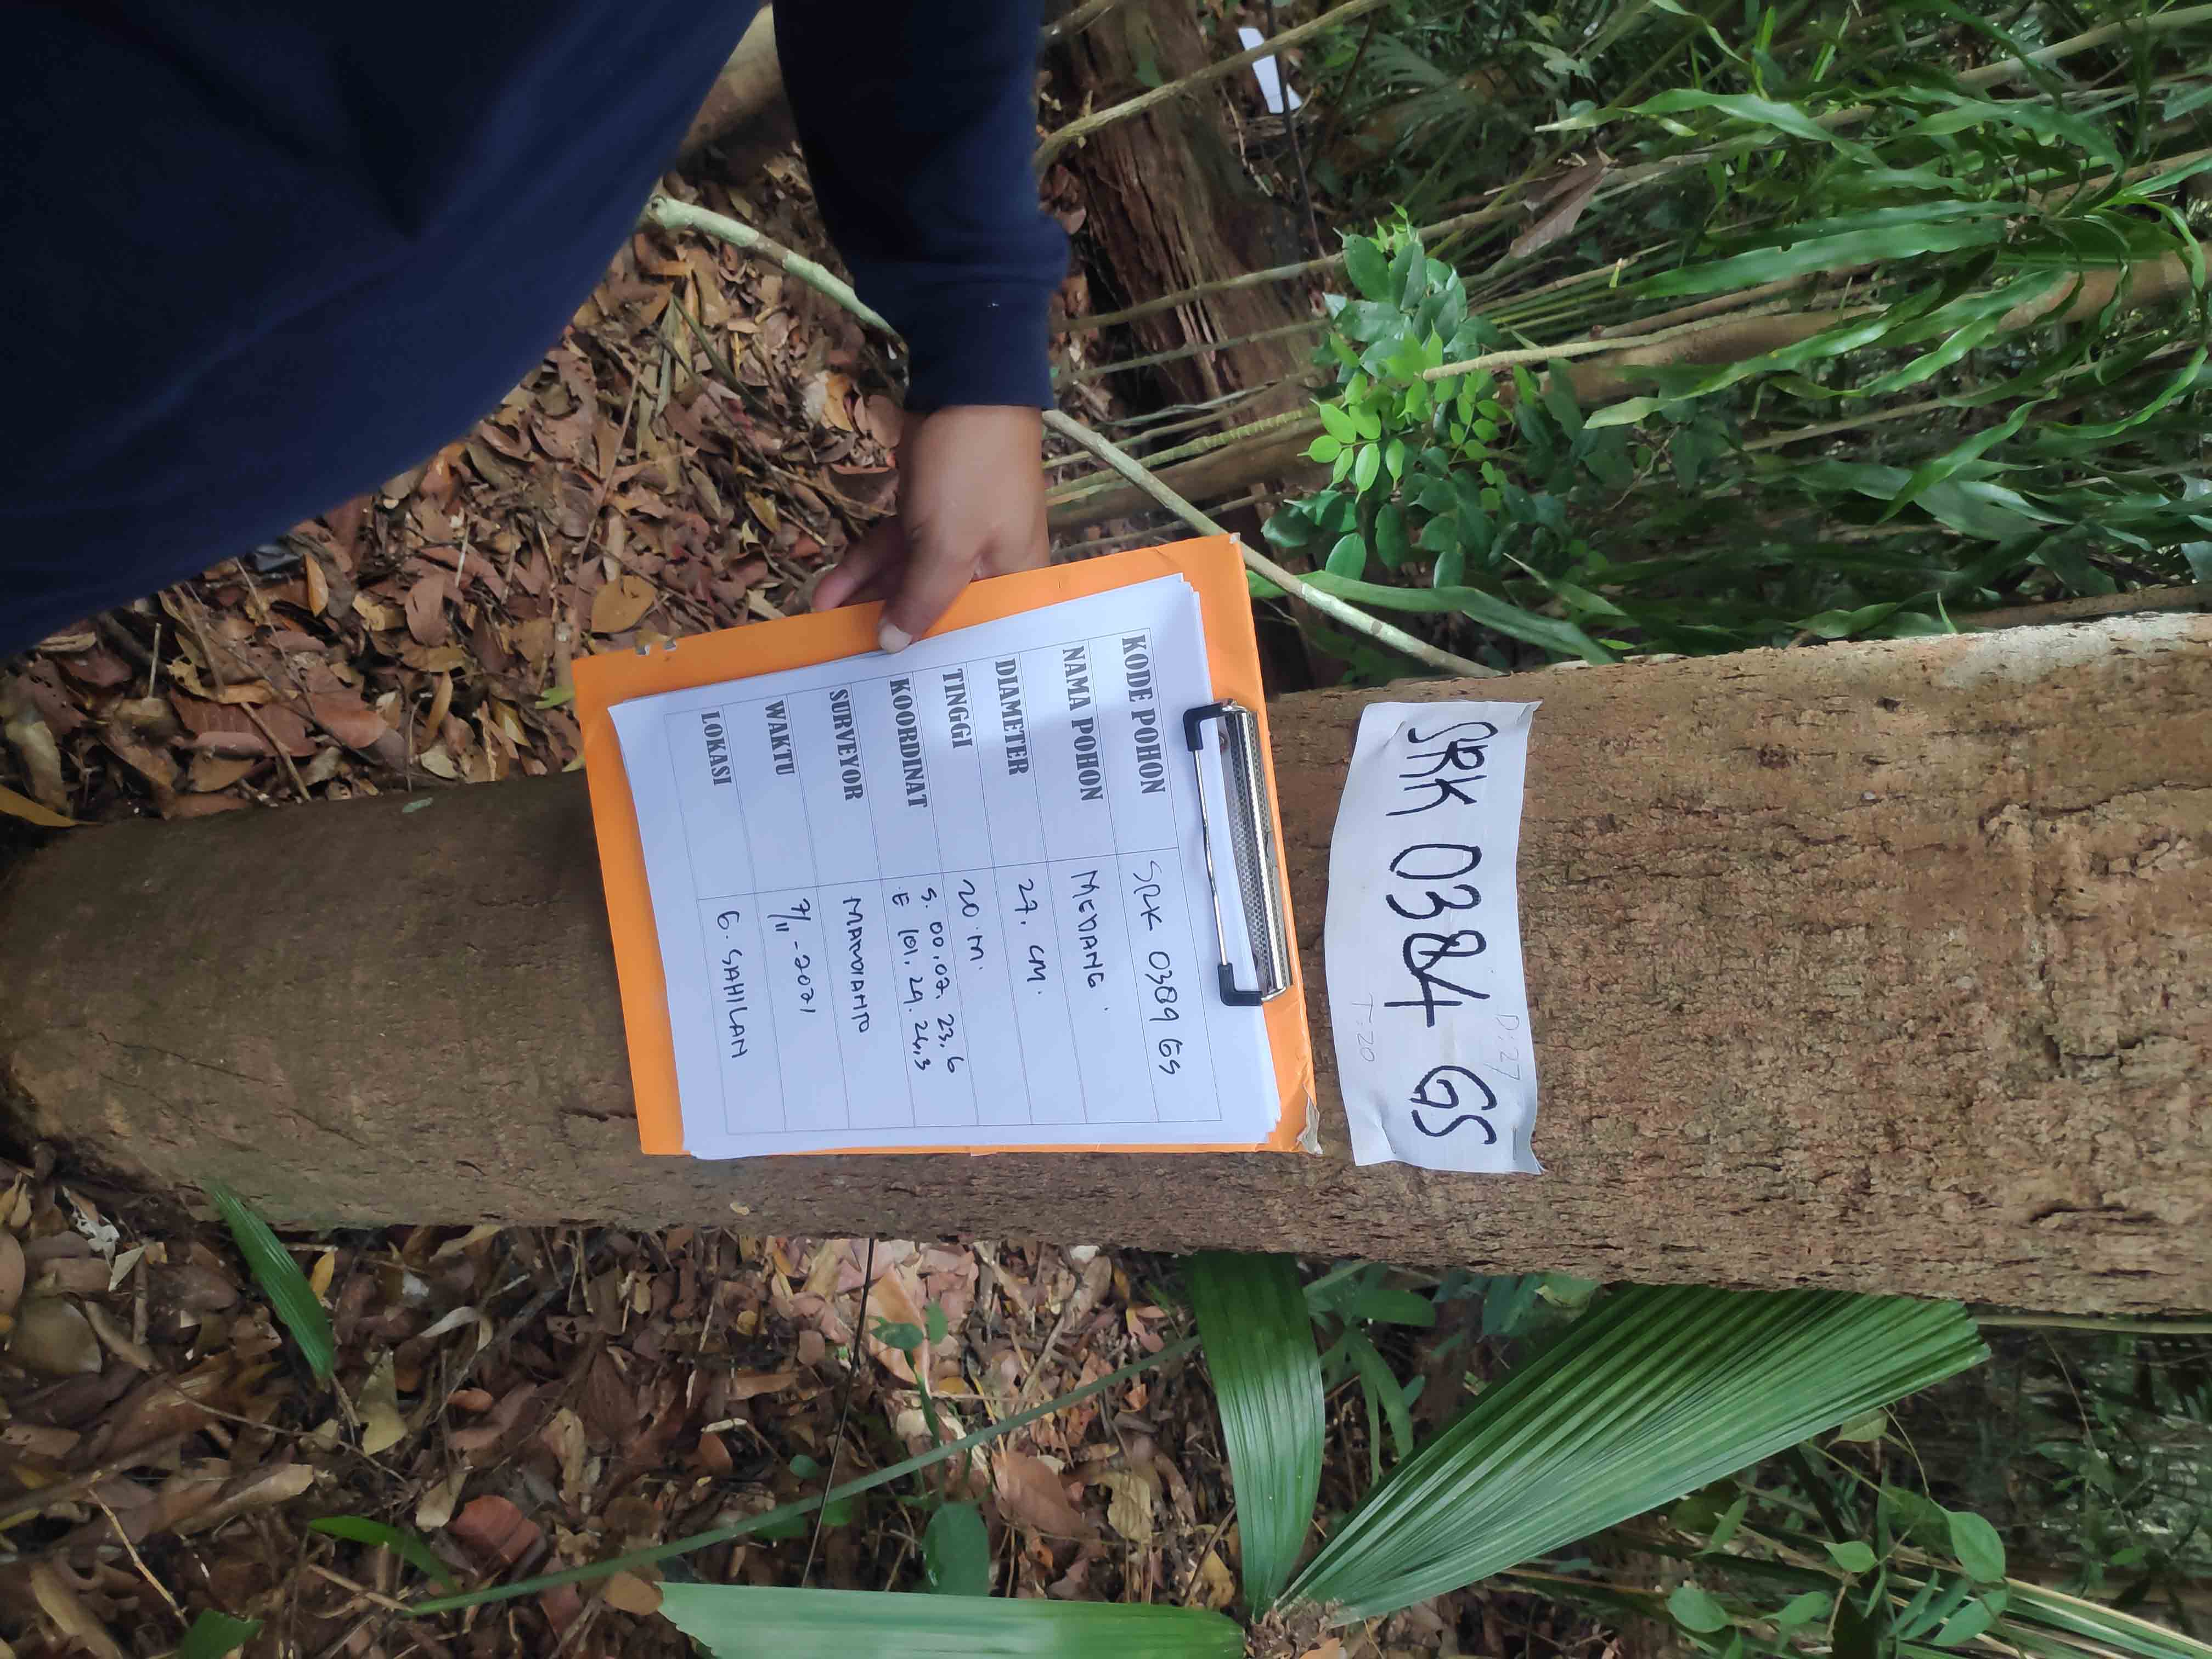 D: 27
SRK 0384 GS
T: 20
KODE POHON SRK 0389 GS
NAMA POHON MEDANG
DIAMETER 27. CM.
TINGGI 20 m.
KOORDINAT S. 00.07. 23.6
E 101. 29. 26,3
SURVEYOR MARDIANTO
WAKTU 7/11 - 2021
LOKASI G. SAHILAN